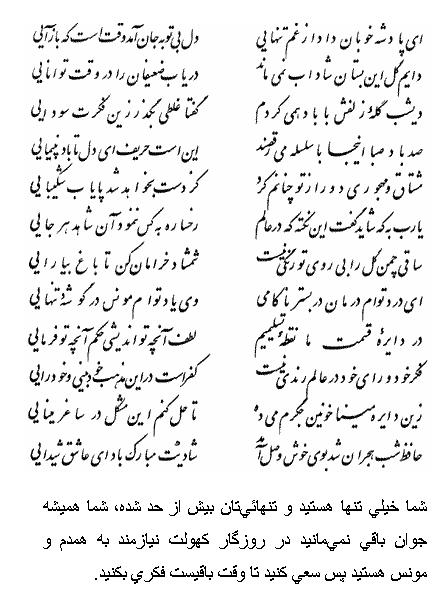 ای پادشه خوبان داد از غم تنهایی دل بی تو به جان آمد وقت است که بازآیی
دایم گل این بستان شاداب نمی ماند دریاب ضعیفان را در وقت توانایی
دیشب گلهٔ زلفش با باد همی کردم گفتا غلطی بگذر زین فکرت سودایی
صد باد صبا اینجا با سلسله می رقصند این است حریف ای دل تا باد نپیمایی
مشتاقی و مهجوری دور از تو چنانم کرد کز دست بخواهد شد پایاب شکیبایی
یارب به که شاید گفت این نکته که در عالم رخساره به کس ننمود آن شاهد هر جایی
ساقی چمن گل را بی روی تو رنگی نیست شمشاد خرامان کن تا باغ بیارایی
ای درد توام درمان در بستر ناکامی وی یاد توام مونس در گوشهٔ تنهایی
در دایرهٔ قسمت ما نقطهٔ تسلیمیم لطف آنچه تو اندیشی حکم آنچه تو فرمایی
فکر خود و رای خود در عالم رندی نیست کفر است در این مذهب خودبینی و خودرایی
زین دایره مینا خونین جگرم می ده تا حل کنم این مشکل در ساغر مینایی
حافظ شب هجران شد بوی خوش وصل آمد شادیت مبارک باد ای عاشق شیدایی
شما خيلي تنها هستيد و تنهائي‌تان بيش از حد شده، شما هميشه
جوان باقي نمي‌مانيد در روزگار کهولت نيازمند به همدم و
مونس هستيد پس سعي کنيد تا وقت باقيست فکري بکنيد.